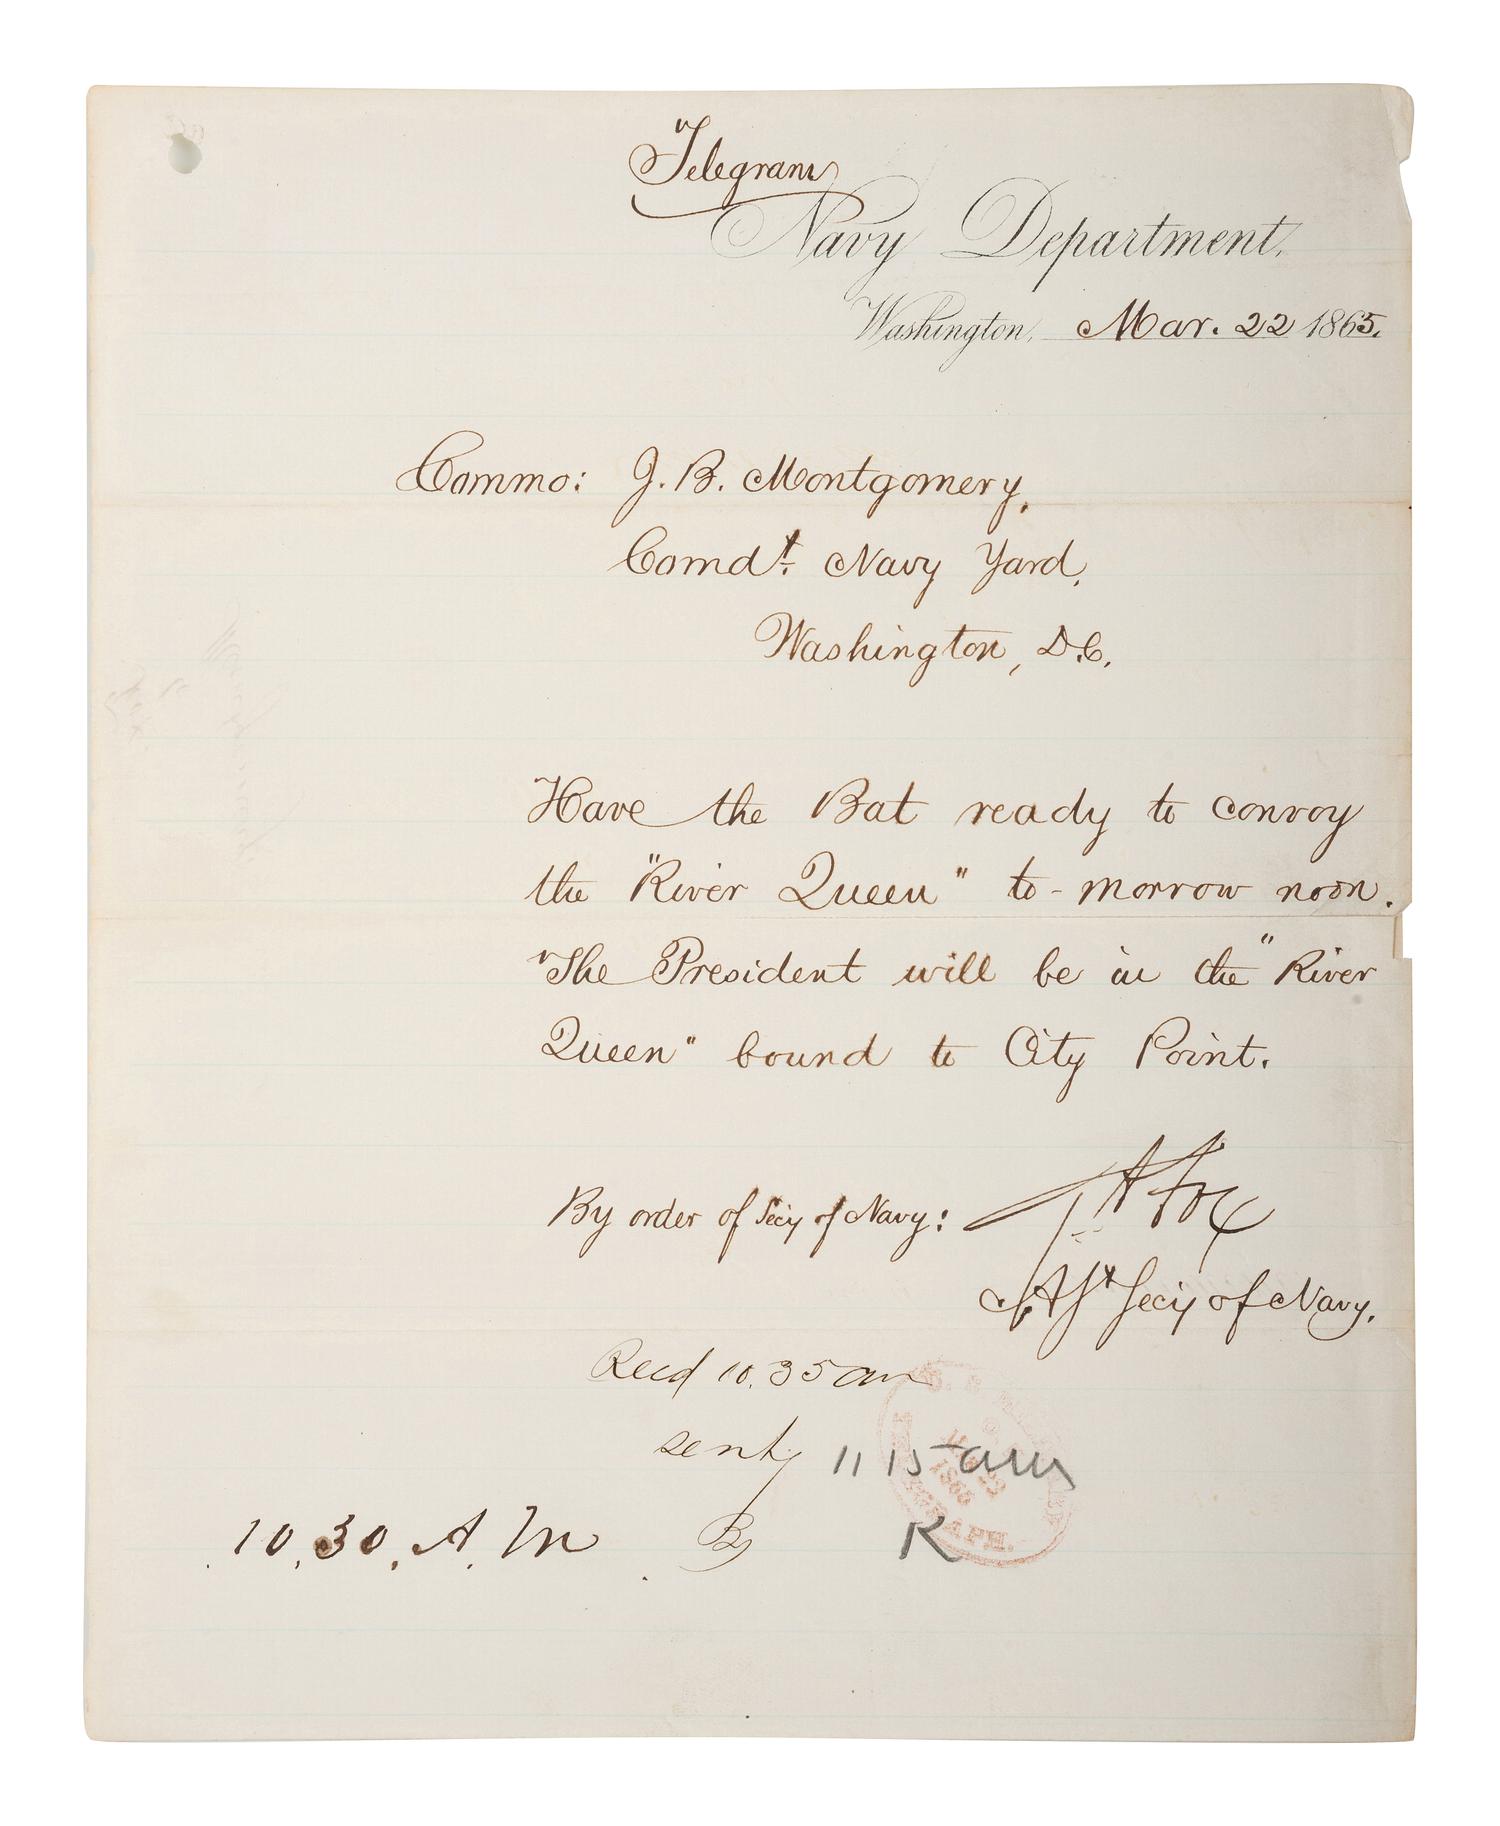 Telegram
Navy Department.
Washington, Mar. 22 1865.
Commo: J. B. Montgomery,
Comdt. Navy Yard,
Washington, D.C.
Have the Bat ready to convoy
the "River Queen" to-morrow noon.
The President will be in the "River
Queen" bound to City Point.
By order of Secy of Navy: G A Fox
Asst Secy of Navy.
Recd 10.35 am
sent 11 15 am
10.30. A. M By K
1865